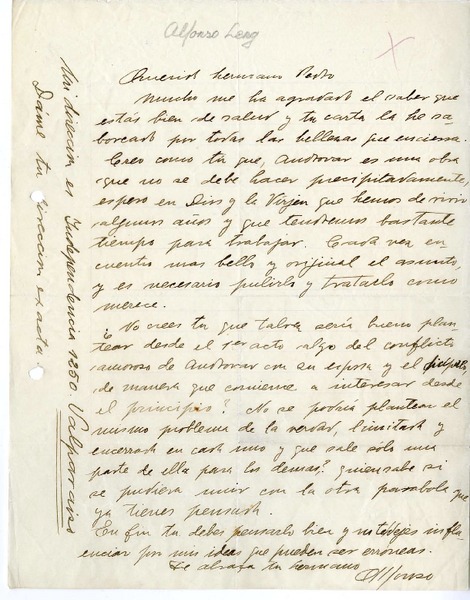 Alfonso Leng
Querido hermano Pedro
Mucho me ha agradado el saber que
estás bien de salud y tu carta la he sa
boreado por todas las bellezas que encierra.
Creo como tu que, Andovar es una obra
que no se debe hacer precipitadamente,
espero en Dios y la Virjen que hemos de vivir
algunos años y que tendremos bastante
tiempo para trabajar. Cada vez en
cuentro mas bello y original el asunto,
y es necesario pulirlo y tratarlo como
merece.
¿No crees tu que talvez sería bueno plan
tear desde el 1er acto algo del conflicto
amoroso de Andovar con su esposa y el
de manera que comience a interesar desde
el principio? No se podría plantear el
mismo problema de la verdad, limitada y
encerrada en cada uno y que sale sólo una
parte de ella para los demas? quien sabe si
se pudiera unir con la otra parabola que
ya tienes pensada.
En fin tu debes pensarlo bien y no te dejes influ
enciar por mis ideas que pueden ser erróneas.
Te abraza tu hermano
Alfonso
Mi dirección es Independencia 1250. Valparaiso
Dáme tu dirección exacta.